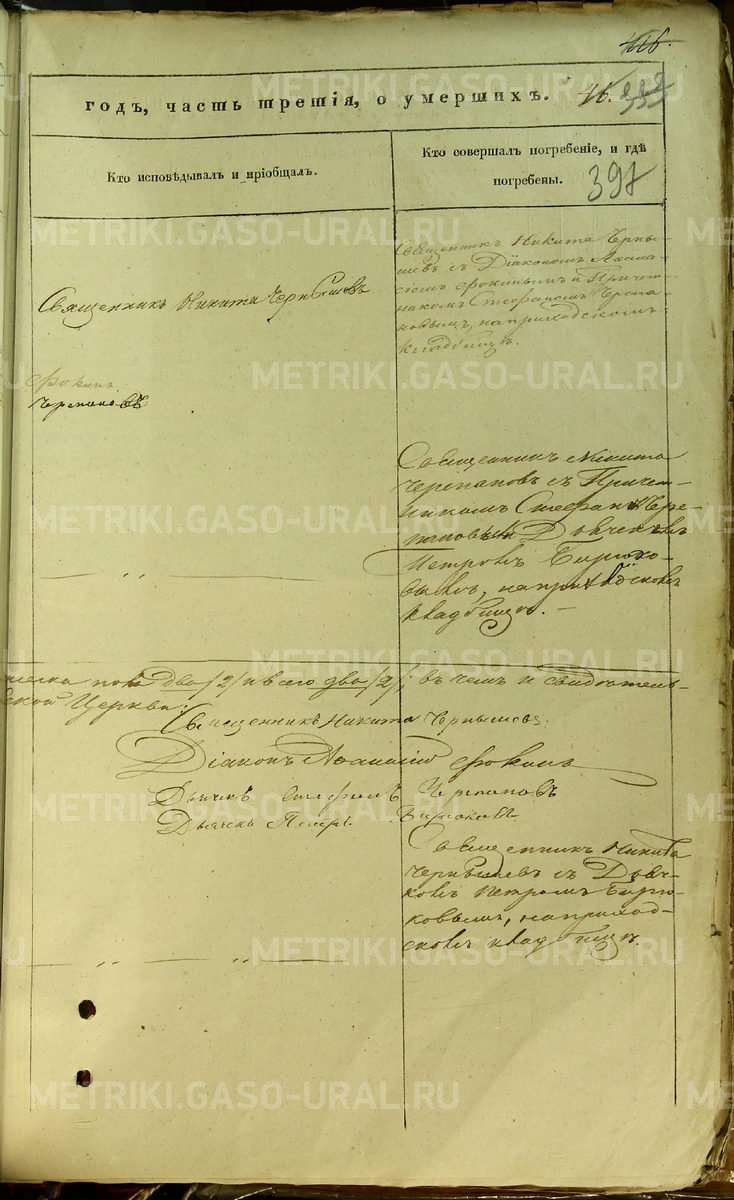 416.
годъ, часть третія, о умершихъ. 46.
Кто исповѣдывалъ и пріобщалъ.
Кто совершалъ погребеніе, и гдѣ
погребены.
397
Священникъ Никита Черны-
шевъ съ Діакономъ Аѳана-
сіемъ Фокинымъ и Причет-
никомъ Стефаномъ Черепа-
новымъ, на приходскомъ
кладбищѣ.
Священникъ Никита Чернышевъ
Фокинъ
Черепановъ
Священникъ Никита
Черепановъ съ Причет-
никомъ Стефаномъ Чере-
пановымъ Дьячкомъ
Петромъ Бирюко-
вымъ, на приходскомъ
кладбищѣ.
пола два /2/ и всего два /2/; въ чемъ и свидѣтель-
ской Церкви:
Священникъ Никита Чернышевъ
Діаконъ Аѳанасій Фокинъ
Дьячекъ Стефанъ Черепановъ
Дьячекъ Петръ Бирюковъ
Священникъ Никита
Чернышевъ съ Дьяч-
комъ Петромъ Бирю-
ковымъ, на приход-
скомъ кладбищѣ.
METRIKI.GASO-URAL.RU